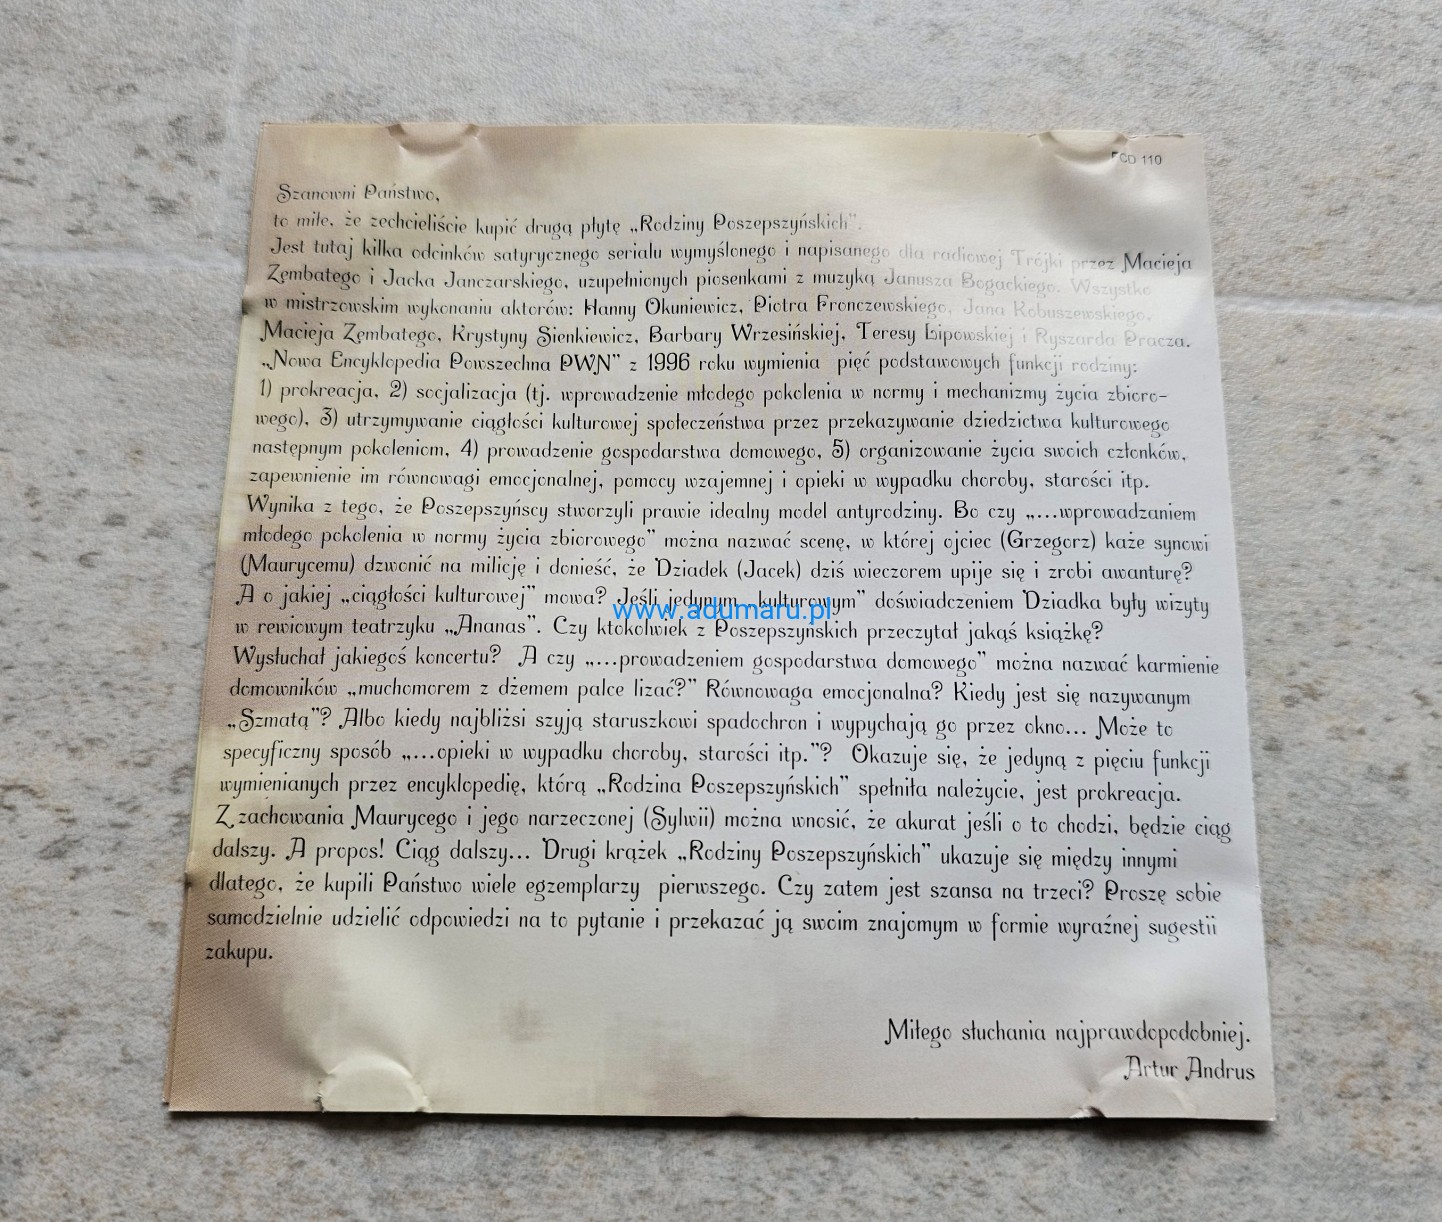 FCD 110
Szanowni Państwo,
to miłe, że zechcieliście kupić drugą płytę „Rodziny Poszepszyńskich”.
Jest tutaj kilka odcinków satyrycznego serialu wymyślonego i napisanego dla radiowej Trójki przez Macieja
Zembatego i Jacka Janczarskiego, uzupełnionych piosenkami z muzyką Janusza Bogackiego. Wszystko
w mistrzowskim wykonaniu aktorów: Hanny Okuniewicz, Piotra Fronczewskiego, Jana Kobuszewskiego,
Macieja Zembatego, Krystyny Sienkiewicz, Barbary Wrzesińskiej, Teresy Lipowskiej i Ryszarda Pracza.
„Nowa Encyklopedia Powszechna PWN” z 1996 roku wymienia pięć podstawowych funkcji rodziny:
1) prokreacja, 2) socjalizacja (tj. wprowadzenie młodego pokolenia w normy i mechanizmy życia zbioro-
wego), 3) utrzymywanie ciągłości kulturowej społeczeństwa przez przekazywanie dziedzictwa kulturowego
następnym pokoleniom, 4) prowadzenie gospodarstwa domowego, 5) organizowanie życia swoich członków,
zapewnienie im równowagi emocjonalnej, pomocy wzajemnej i opieki w wypadku choroby, starości itp.
Wynika z tego, że Poszepszyńscy stworzyli prawie idealny model antyrodziny. Bo czy „...wprowadzaniem
młodego pokolenia w normy życia zbiorowego” można nazwać scenę, w której ojciec (Grzegorz) każe synowi
(Maurycemu) dzwonić na milicję i donieść, że Dziadek (Jacek) dziś wieczorem upije się i zrobi awanturę?
A o jakiej „ciągłości kulturowej” mowa? Jeśli jedynym „kulturowym” doświadczeniem Dziadka były wizyty
www.adumaru.pl
w rewiowym teatrzyku „Ananas”. Czy ktokolwiek z Poszepszyńskich przeczytał jakąś książkę?
Wysłuchał jakiegoś koncertu? A czy „...prowadzeniem gospodarstwa domowego” można nazwać karmienie
domowników „muchomorem z dżemem palce lizać?” Równowaga emocjonalna? Kiedy jest się nazywanym
„Szmatą”? Albo kiedy najbliżsi szyją staruszkowi spadochron i wypychają go przez okno... Może to
specyficzny sposób „...opieki w wypadku choroby, starości itp.”? Okazuje się, że jedyną z pięciu funkcji
wymienianych przez encyklopedię, którą „Rodzina Poszepszyńskich” spełniła należycie, jest prokreacja.
Z zachowania Maurycego i jego narzeczonej (Sylwii) można wnosić, że akurat jeśli o to chodzi, będzie ciąg
dalszy. A propos! Ciąg dalszy... Drugi krążek „Rodziny Poszepszyńskich” ukazuje się między innymi
dlatego, że kupili Państwo wiele egzemplarzy pierwszego. Czy zatem jest szansa na trzeci? Proszę sobie
samodzielnie udzielić odpowiedzi na to pytanie i przekazać ją swoim znajomym w formie wyraźnej sugestii
zakupu.
Miłego słuchania najprawdopodobniej.
Artur Andrus